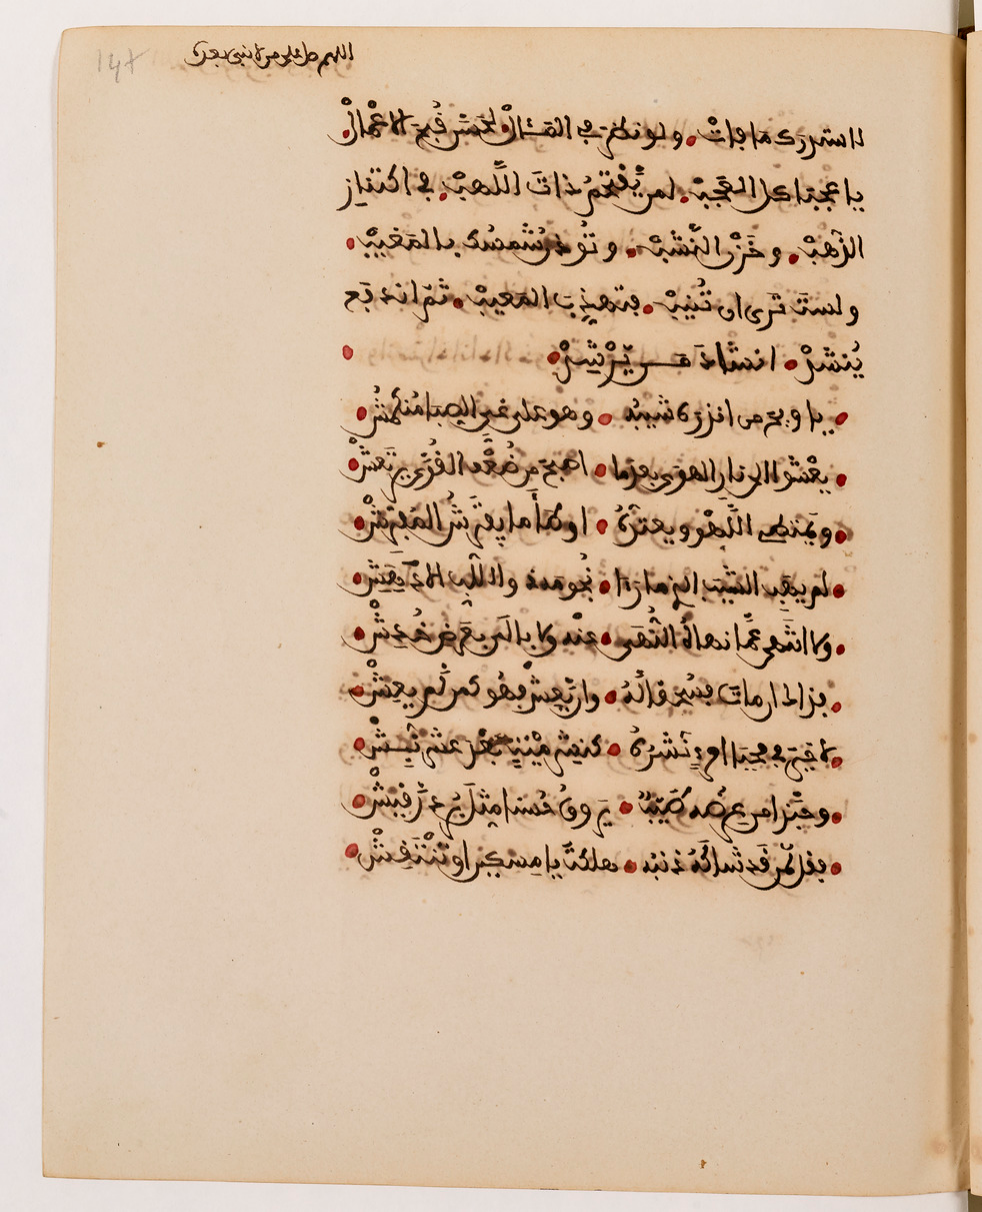 اللهم صل على من لا نبي بعده
لاستدرك ما فاتْ ولو نظر في المَئَالْ لحَسَّن قُبحَ الاعْمَالْ
يا عجبا كل العجَبْ لمن يَّقْتَحمُ ذاتَ اللَّهبْ في اكتناز
الذهبْ وخَزْن النَّشَبْ وتُوذن شمسُك بالمَغيبْ
ولستَ ترى ان تُنيبْ وتهذِّبَ المَعِيبْ ثم اندفع
يُنشدْ انشادَ من يّرْشِدْ
يا ويح من انذره شيبُه وهو على غي الصبا مُنكمشْ
يعْشُوا الى نار الهوى بعدما اصبح من ضُعْف القُوَى يرتَعشْ
ويمتطي اللَّهْو ويعتدُّهُ اوطَأَ ما يفترشُ المفترشْ
لم يهب الشيبَ الذي ما رءا نُجومه ذو اللُّب الا دهِشْ
ولا انتهى عمَّا نهاهُ النُّهَى عنه ولا بالَى بعرض خُدِشْ
فذاك ان مات فسُحْقا لهُ وان يّعِشْ فهو كمن لم يعِشْ
لا خير في محيا امرئٍ نَشرُهُ كنشر مَيْتٍ بعْد عشر نُبِشْ
وحبّذا من عرضُه طيّبٌ يروقُ حُسنا مثلَ بُردٍ رُقِشْ
فقل لمن قد شاكَهُ ذنبه هلكتَ يا مسكين او تنْتَقِشْ